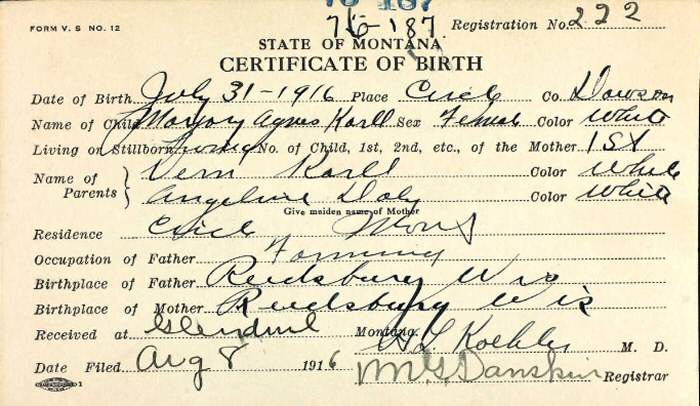 76-187
FORM V. S NO. 12
76-187. Registration No. 222
STATE OF MONTANA
CERTIFICATE OF BIRTH
Date of Birth July 31-1916 Place Circle Co. Dawson
Name of Child Marjory Agnes Karll Sex Female Color White
Living or Stillborn Living No. of Child, 1st, 2nd, etc., of the Mother 1st
Name of Parents Vern Karll Color White
Angeline Daly Color White
Give maiden name of Mother
Residence Circle Mont
Occupation of Father Farming
Birthplace of Father Reedsburg Wis
Birthplace of Mother Reedsburg Wis
Received at Glendive Montana. Koehler M. D.
Date Filed Aug 8 1916 Danskin Registrar